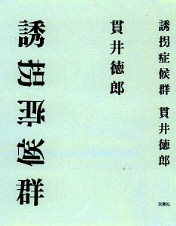 誘拐症候群 貫井徳郎
双葉社
貫井徳郎
誘拐症候群